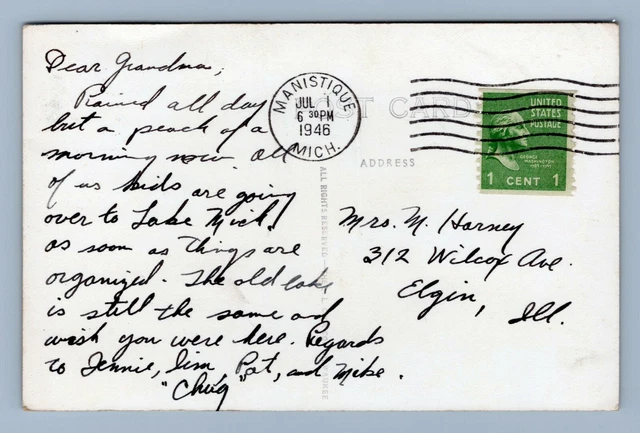 Dear Grandma,
Rained all day
but a peach of a
morning now. All
of us kids are going
over to Lake Mich.
as soon as things are
organized. The old lake
is still the same and
wish you were here. Regards
to Jennie, Jim, Pat, and Mike.
"Chug"
MANISTIQUE
JUL 1
6 30 PM
1946
MICH.
POST CARD
ADDRESS
ALL RIGHTS RESERVED
UNITED
STATES
POSTAGE
GEORGE
WASHINGTON
1 CENT 1
Mrs. M. Harney
312 Wilcox Ave.
Elgin,
Ill.